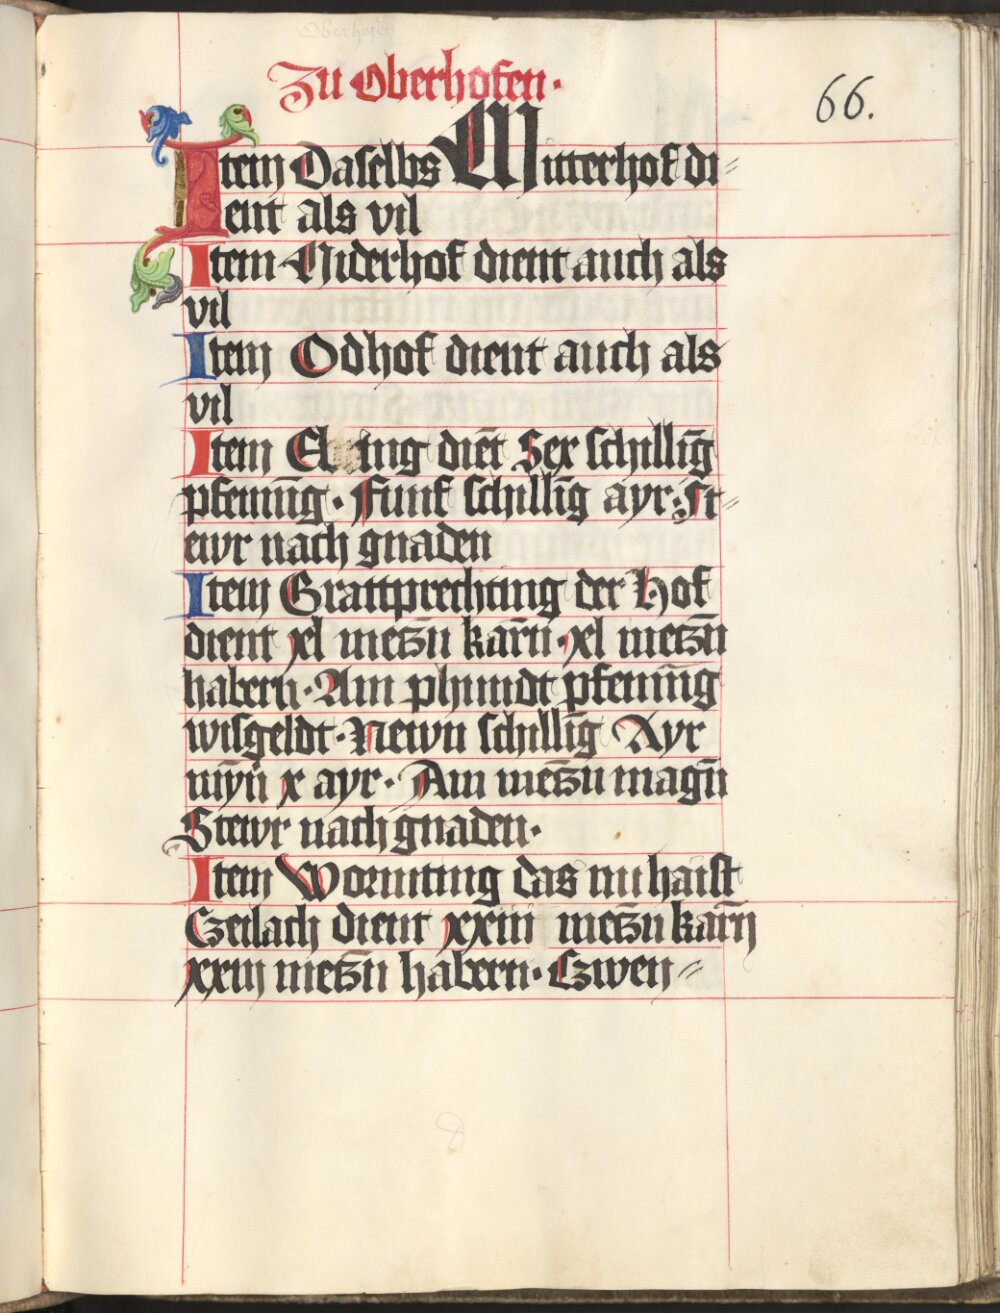 Zu Oberhofen·
66.
Item Daselbs Mitterhof di=
ent als vil
Item Niderhof dient auch als
vil
Item Odhof dient auch als
vil
Item El ing dieñt Sex schilling̃
pfenning̃· Funf schilling̃ ayr· St=
ewr nach gnaden
Item Grattprechting der Hof
dient xl meczn̄ karn̄· xl meczn̄
habern· Ain phundt pfenning̃
wisgeldt· Newn schilling̃ Ayr
myn̄ x ayr· Ain meczn̄ magn̄
Stewr nach gnaden·
Item Wormting das nu haist
Czeilach dient xxiii meczn̄ karn̄
xxiij meczn̄ habern· Czwen=